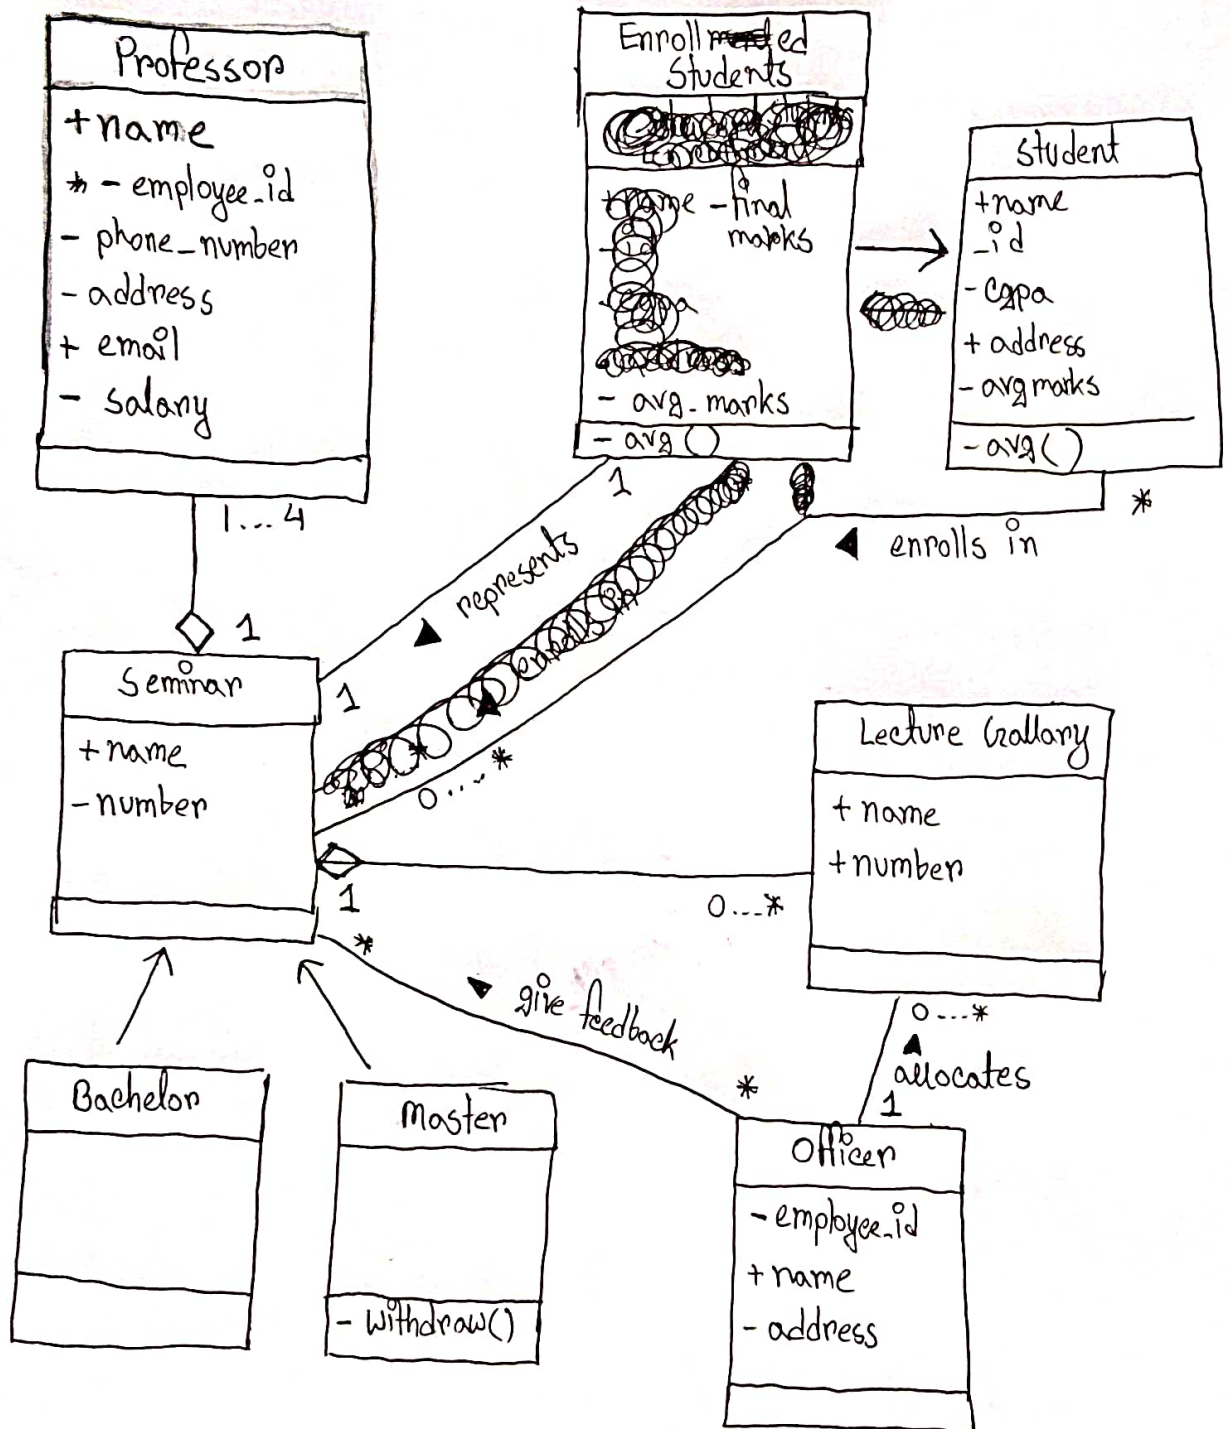 Professor
+ name
* - employee_id
- phone_number
- address
+ email
- salary
1...4
1
Enrolled
Students
- final
marks
- avg_marks
- avg()
Student
+name
-id
- cgpa
+ address
- avgmarks
- avg()
*
enrolls in
1
represents
1
enrolls in
*
0....*
Seminar
+ name
- number
1
0...*
Lecture Gallary
+ name
+number
0....*
allocates
1
*
give feedback
*
Bachelor
Master
- withdraw()
Officer
- employee_id
+ name
- address